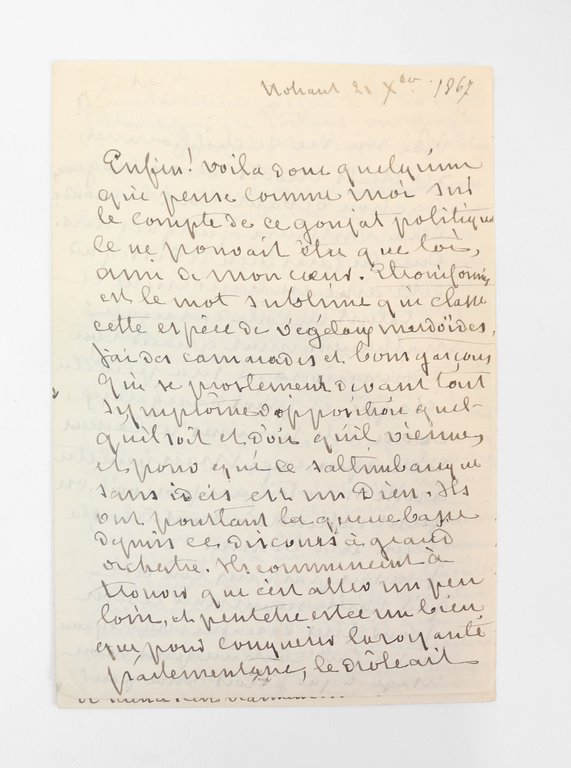 Nohant 21 Xbr 1867
Enfin! voila donc quelqu'un
qui pense comme moi sur
le compte de ce goujat politique
Ce ne pouvait être que toi,
ami de mon cœur. Etroniformes
est le mot sublime qui classe
cette espèce de végétaux merdoïdes.
J'ai des camarades et bons garçons
qui se prosternent devant tout
symptôme d'opposition quel-
qu'il soit et d'où qu'il vienne,
et pour qui ce saltimbanque
sans idées est un Dieu. Ils
ont pourtant la queue basse
depuis ce discours à grand
orchestre. Ils commencent à
trouver que c'est aller un peu
loin, et peutetre est ce un bien
que pour conquerir la royauté
parlementaire, le drôle ait